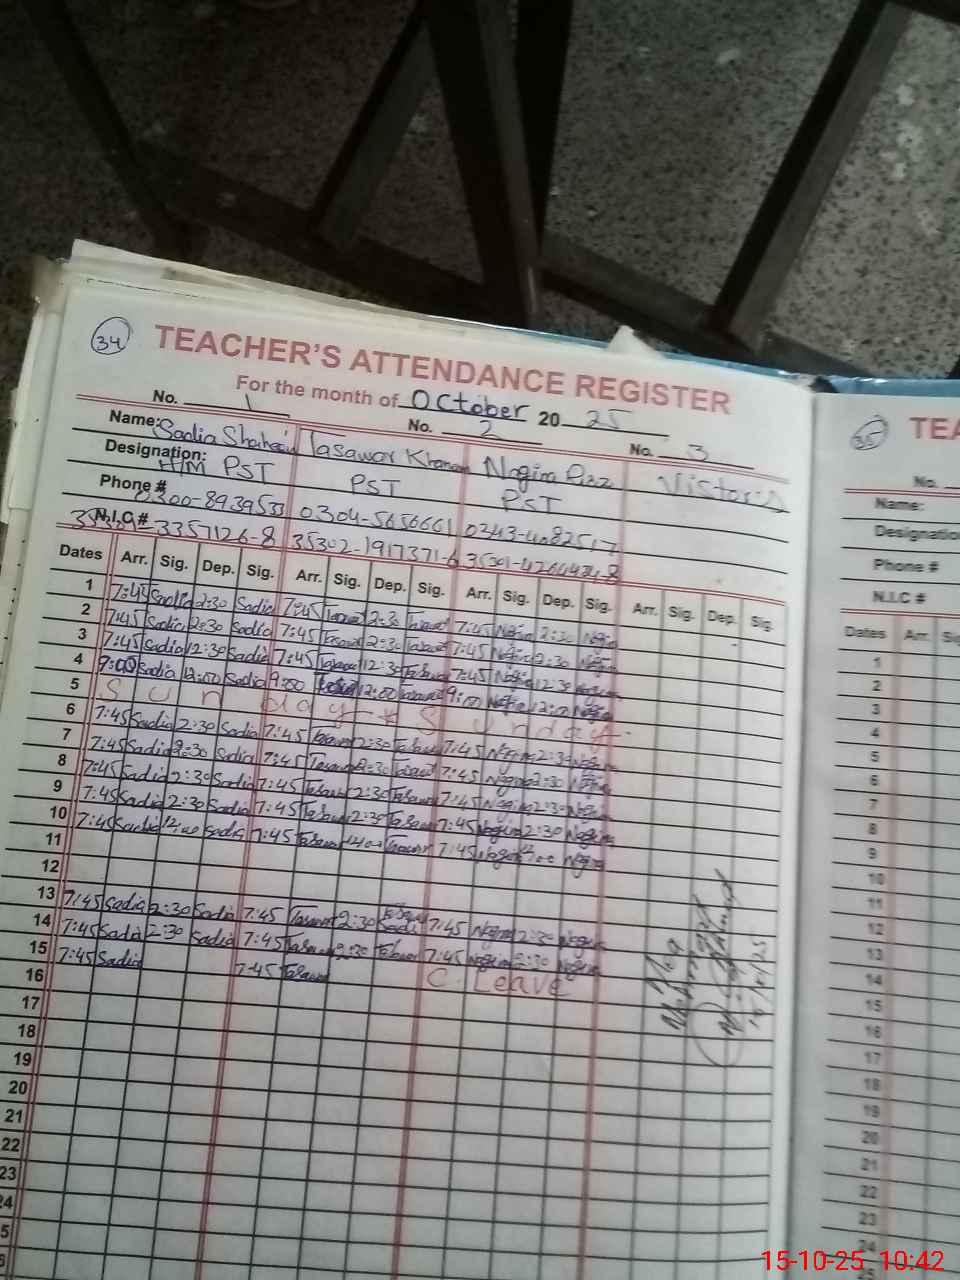 34
TEACHER'S ATTENDANCE REGISTER
For the month of October 2025
No. 1 No. 2 No. 3
Name: Sadia Shaheen Tasawar Khanam Nagina
Designation: H/M PST PST PST
Phone # 0300-8939533 0304-5656661
N.I.C # 3357126-8 35302-1917371-6
Dates Arr. Sig. Dep. Sig. Arr. Sig. Dep. Sig. Arr. Sig. Dep. Sig. Arr. Sig. Dep. Sig.
1 7:45 Sadia 2:30 Sadia 7:45 Tasawar 2:30 Tasawar 7:45 Nagina 2:30 Nagina
2 7:45 Sadia 2:30 Sadia 7:45 Tasawar 2:30 Tasawar 7:45 Nagina 2:30 Nagina
3 7:45 Sadia 12:30 Sadia 7:45 Tasawar 12:30 Tasawar 7:45 Nagina 12:30 Nagina
4 9:00 Sadia 12:00 Sadia 9:00 12:00 Tasawar 9:00 Nagina 12:00 Nagina
5 Sunday Sunday
6 7:45 Sadia 2:30 Sadia 7:45 Tasawar 2:30 Tasawar 7:45 Nagina 2:30 Nagina
7 7:45 Sadia 2:30 Sadia 7:45 Tasawar 2:30 Tasawar 7:45 Nagina 2:30 Nagina
8 7:45 Sadia 2:30 Sadia 7:45 Tasawar 2:30 Tasawar 7:45 Nagina 2:30 Nagina
9 7:45 Sadia 2:30 Sadia 7:45 Tasawar 2:30 Tasawar 7:45 Nagina 2:30 Nagina
10 7:45 Sadia 12:00 Sadia 7:45 Tasawar 12:00 Tasawar 7:45 Nagina 12:00 Nagina
11
12
13 7:45 Sadia 2:30 Sadia 7:45 Tasawar 2:30 7:45 Nagina 2:30 Nagina
14 7:45 Sadia 2:30 Sadia 7:45 Tasawar 2:30 Tasawar 7:45 Nagina 2:30 Nagina
15 7:45 Sadia 7:45 Tasawar C. Leave
16
17
18
19
20
21
22
23
24
35
TEA
No.
Name:
Designation
Phone #
N.I.C #
Dates Arr.
1
2
3
4
5
6
7
8
9
10
11
12
13
14
15
16
17
18
19
20
21
22
23
24
15-10-25 10:42